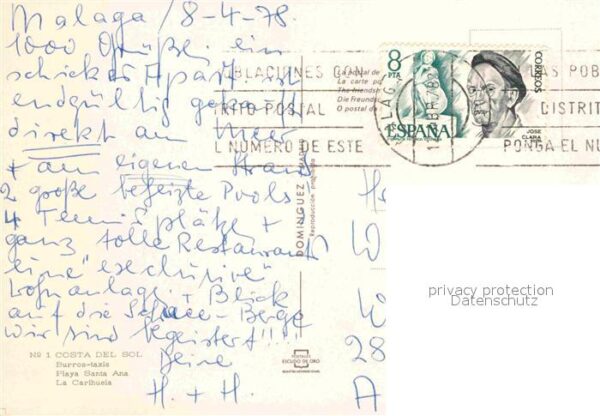 Malaga / 8-4-78.
1000 Grüße, ein
schickes Apart. ist
endgültig gekauft
direkt am Meer
+ am eigenen Strand
2 große beheizte Pools
4 Tennisplätze +
ganz tolle Restaurants
eine "exclusive"
Wohnanlage + Blick
auf die Schnee-Berge
Wir sind begeistert!!!!
Deine
H. + H.
Nº 1 COSTA DEL SOL
Burros-taxis
Playa Santa Ana
La Carihuela
DOMINGUEZ
Reproducción prohibida
POSTALES
ESCUDO DE ORO
La postal de
La carte po
The friendsh
Die Freundsc
O postal de
BLACIONES CON
NTO POSTAL
L NUMERO DE ESTE
LAS POB
DISTRIT
PONGA EL NU
8
PTA
ESPAÑA
CORREOS
JOSE
CLARA
W
28
A
privacy protection
Datenschutz